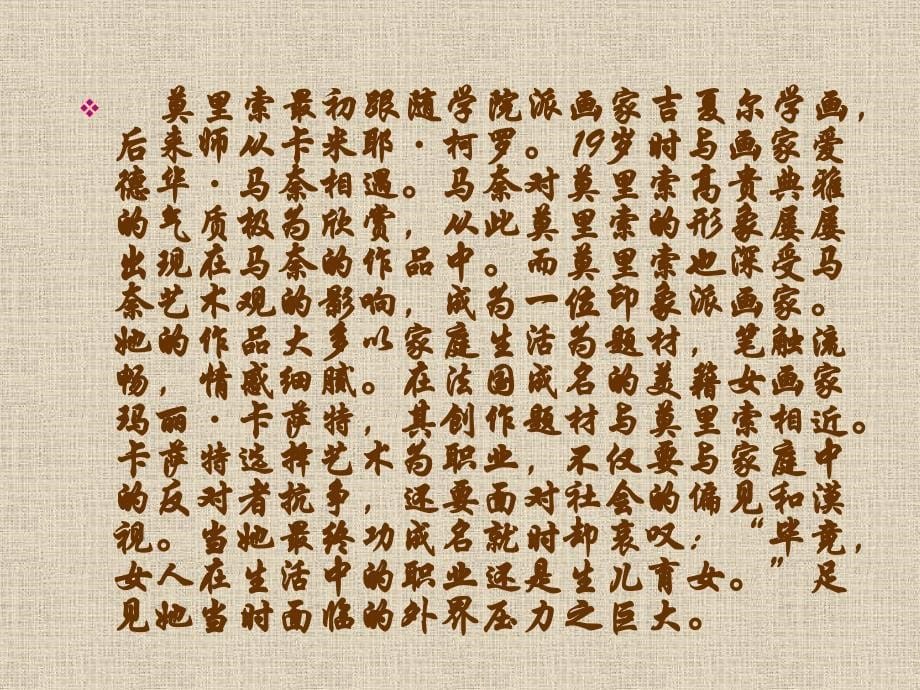 莫里索最初跟随学院派画家吉夏尔学画，
后来师从卡米耶·柯罗。19岁时与画家爱
德华·马奈相遇。马奈对莫里索高贵典雅
的气质极为欣赏，从此莫里索的形象屡屡
出现在马奈的作品中。而莫里索也深受马
奈艺术观的影响，成为一位印象派画家。
她的作品大多以家庭生活为题材，笔触流
畅，情感细腻。在法国成名的美籍女画家
玛丽·卡萨特，其创作题材与莫里索相近。
卡萨特选择艺术为职业，不仅要与家庭中
的反对者抗争，还要面对社会的偏见和漠
视。当她最终功成名就时却哀叹：“毕竟，
女人在生活中的职业还是生儿育女。”足
见她当时面临的外界压力之巨大。